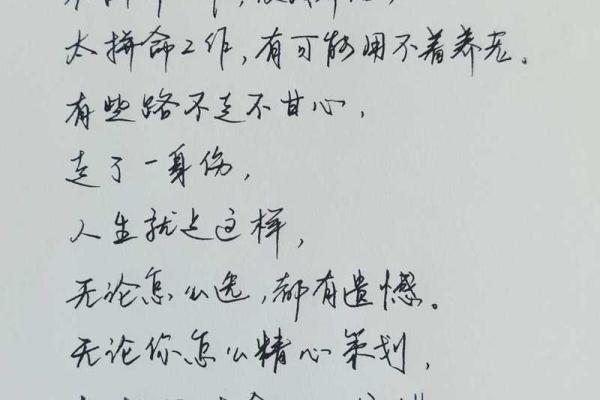 太拼命工作,有可能用不着养老。
有些路不走不甘心,
走了一身伤,
人生就是这样,
无论怎么选,都有遗憾。
无论你怎么精心策划,